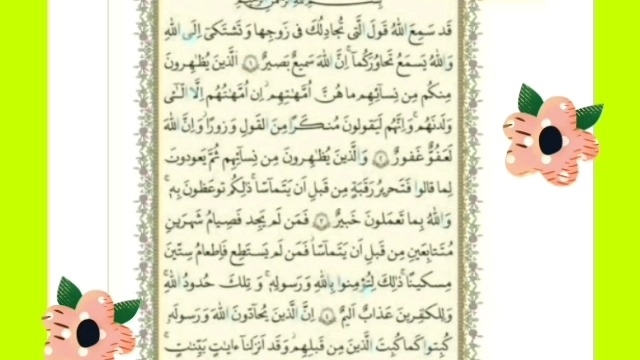 قَد سَمِعَ اللهُ قَولَ الَّتی تُجادِلُكَ فی زَوجِها وَ تَشتَكی اِلَی اللهِ
وَ اللهُ یَسمَعُ تَحاوُرَكُما ۚ اِنَّ اللهَ سَمیعٌ بَصیرٌ ﴿۱﴾ اَلَّذینَ یُظٰهِرونَ
مِنكُم مِن نِسآئِهِم ما هُنَّ اُمَّهٰتِهِم ۖ اِن اُمَّهٰتُهُم اِلَّا الّٰـٔی
وَلَدنَهُم ۚ وَ اِنَّهُم لَیَقولونَ مُنكَرًا مِنَ القَولِ وَ زورًا ۚ وَ اِنَّ اللهَ
لَعَفُوٌّ غَفورٌ ﴿۲﴾ وَ الَّذینَ یُظٰهِرونَ مِن نِسآئِهِم ثُمَّ یَعودونَ
لِما قالوا فَتَحریرُ رَقَبَةٍ مِن قَبلِ اَن یَتَمآسّا ۚ ذٰلِكُم توعَظونَ بِه ۚ
وَ اللهُ بِما تَعمَلونَ خَبیرٌ ﴿۳﴾ فَمَن لَم یَجِد فَصِیامُ شَهرَینِ
مُتَتابِعَینِ مِن قَبلِ اَن یَتَمآسّا ۖ فَمَن لَم یَستَطِع فَاِطعامُ سِتّینَ
مِسكینًا ۚ ذٰلِكَ لِتُؤمِنوا بِاللهِ وَ رَسولِه ۚ وَ تِلكَ حُدودُ اللهِ ۗ
وَ لِلكٰفِرینَ عَذابٌ اَلیمٌ ﴿۴﴾ اِنَّ الَّذینَ یُحآدّونَ اللهَ وَ رَسولَه
كُبِتوا كَما كُبِتَ الَّذینَ مِن قَبلِهِم ۚ وَ قَد اَنزَلنا ءایٰتٍ بَیِّنٰتٍ ۚ